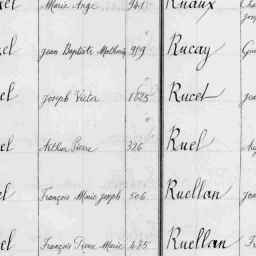 el Marie Ange 941 Ruaux
el Jean Baptiste Mathurin 919 Rucay
el Joseph Victor 1825 Rucet
el Arthur Pierre 326 Ruel
el François Marie Joseph 506 Ruellan
el François Pierre Marie 475 Ruellan